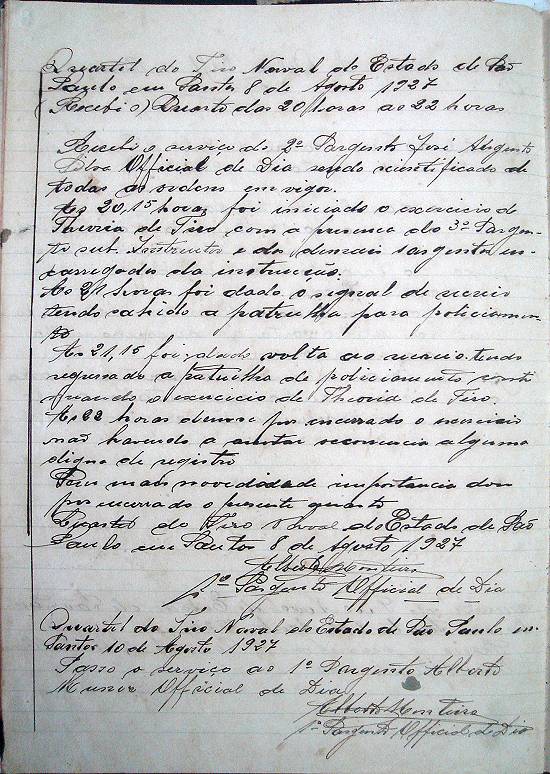 Quartel do Tiro Naval do Estado de São
Paulo em Santos 8 de Agosto 1927
(Recebi o) Quarto das 20 horas ao 22 horas
Recebi o serviço do 2º Sargento José Augusto
Silva Official de Dia sendo scientificado de
todas as ordens em vigor.
As 20,15 horas foi iniciado o exercicio de
Theoria de Tiro com a presença do 3º Sargen-
to sub. Instructor e dos demais sargentos en-
carregados da instrucção.
As 21 horas foi dado o signal de recreio
tendo sahido a patrulha para policiamen-
to
As 21,15 foi dado volta ao recreio tendo
regressado a patrulha de policiamento conti
nuando o exercicio de Theoria de Tiro.
As 22 horas deu-se por encerrado o exercicio
não havendo a anotar occorrencia alguma
digna de registro
Sem mais novedidade importancia dou
por encerrado o presente quarto
Quartel do Tiro Naval do Estado de São
Paulo, em Santos 8 de Agosto 1927
Alberto Monteiro
1º Sargento Official de Dia
Quartel do Tiro Naval do Estado de São Paulo em
Santos 10 de Agosto 1927
Passo o serviço ao 1º Sargento Alberto
Official de Dia
Alberto Monteiro
1º Sargento Official de Dia